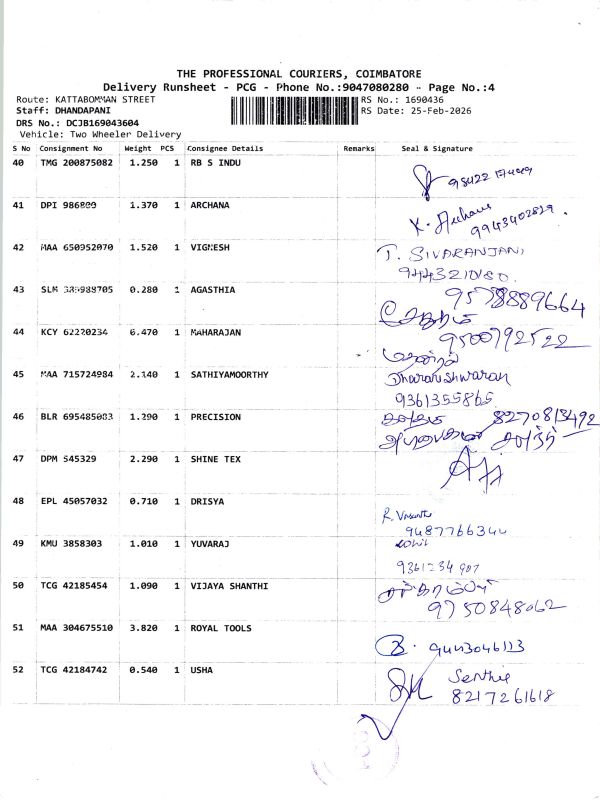 THE PROFESSIONAL COURIERS, COIMBATORE
Delivery Runsheet - PCG - Phone No.:9047080280 - Page No.:4
Route: KATTABOMMAN STREET RS No.: 1690436
Staff: DHANDAPANI RS Date: 25-Feb-2026
DRS No.: DCJB169043604
Vehicle: Two Wheeler Delivery
S No Consignment No Weight PCS Consignee Details Remarks Seal & Signature
40 TMG 200875082 1.250 1 RB S INDU
41 DPI 1.370 1 ARCHANA
9943402829
42 MAA 650952070 1.520 1 VIGNESH T. SIVARANJANI
9443210180.
43 SLM 0.280 1 AGASTHIA 9578889664
44 KCY 62220234 6.470 1 MAHARAJAN 9500792522
45 MAA 715724984 2.140 1 SATHIYAMOORTHY Dharanishwaran
9361355865
46 BLR 1.290 1 PRECISION 8270813492
47 DPM 545329 2.290 1 SHINE TEX
48 EPL 45057032 0.710 1 DRISYA R. Vasanthi
49 KMU 3858303 1.010 1 YUVARAJ
9361234907
50 TCG 42185454 1.090 1 VIJAYA SHANTHI
9750848062
51 MAA 304675510 3.820 1 ROYAL TOOLS 9443046113
52 TCG 42184742 0.540 1 USHA
8217261618